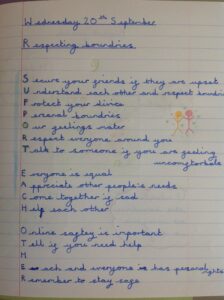 Wednesday 20th September
Respecting boundries.
Secure your friends if they are upset
Understand each other and respect boundries
Protect your
Personal boundries
Our feelings mater
Respect everyone around you
Talk to someone if you are feeling
uncomfortable
Everyone is equal
Appriciate other people's needs
Come together if sad
Help each other.
Online saftey is important
Tell if you need help
Each and everyone has personal rights
Remember to stay safe